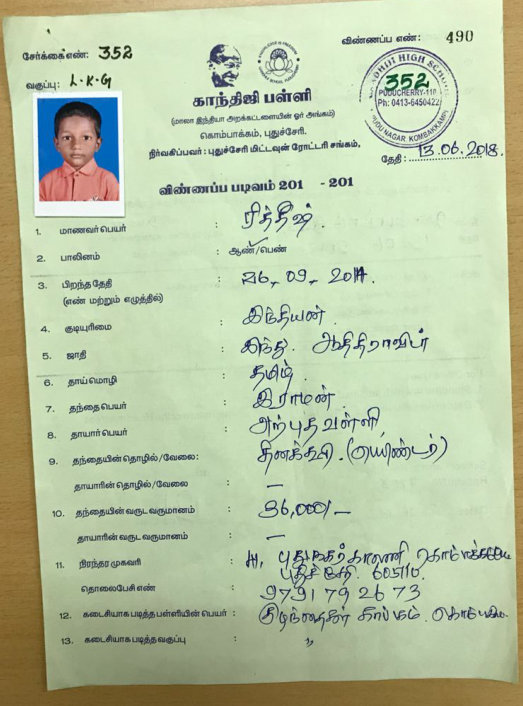 விண்ணப்ப எண்: 490
சேர்க்கை எண்: 352
வகுப்பு: L.K.G
GANDHIJI HIGH SCHOOL
352
PUDUCHERRY-110
Ph: 0413-6450422
PUDUNAGAR KOMBAKKAM
காந்திஜி பள்ளி
(மாலா இந்தியா அறக்கட்டளையின் ஓர் அங்கம்)
கொம்பாக்கம், புதுச்சேரி.
நிர்வகிப்பவர் : புதுச்சேரி மிட்டவுன் ரோட்டரி சங்கம்,
தேதி : 13.06.2018.
விண்ணப்ப படிவம் 201 - 201
1. மாணவர் பெயர் : ரித்தீஷ்.
2. பாலினம் : ஆண்/பெண்
3. பிறந்த தேதி : 26, 09, 2014.
(எண் மற்றும் எழுத்தில்)
4. குடியுரிமை : இந்தியன்
5. ஜாதி : இந்து. ஆதிதிராவிடர்
6. தாய் மொழி : தமிழ்.
7. தந்தை பெயர் : இராமன்.
8. தாயார் பெயர் : அற்புதவள்ளி
9. தந்தையின் தொழில்/வேலை: தினக்கூலி. (பெயிண்டர்)
தாயாரின் தொழில்/வேலை : —
10. தந்தையின் வருட வருமானம் : 36,000/-
தாயாரின் வருட வருமானம் : —
11. நிரந்தர முகவரி : புதுநகர் காலணி கொம்பாக்கம்
புதுச்சேரி. 605110.
தொலைபேசி எண் : 9791 79 26 73
12. கடைசியாக படித்த பள்ளியின் பெயர் : குழந்தைகள் காப்பகம்.
13. கடைசியாக படித்த வகுப்பு : "